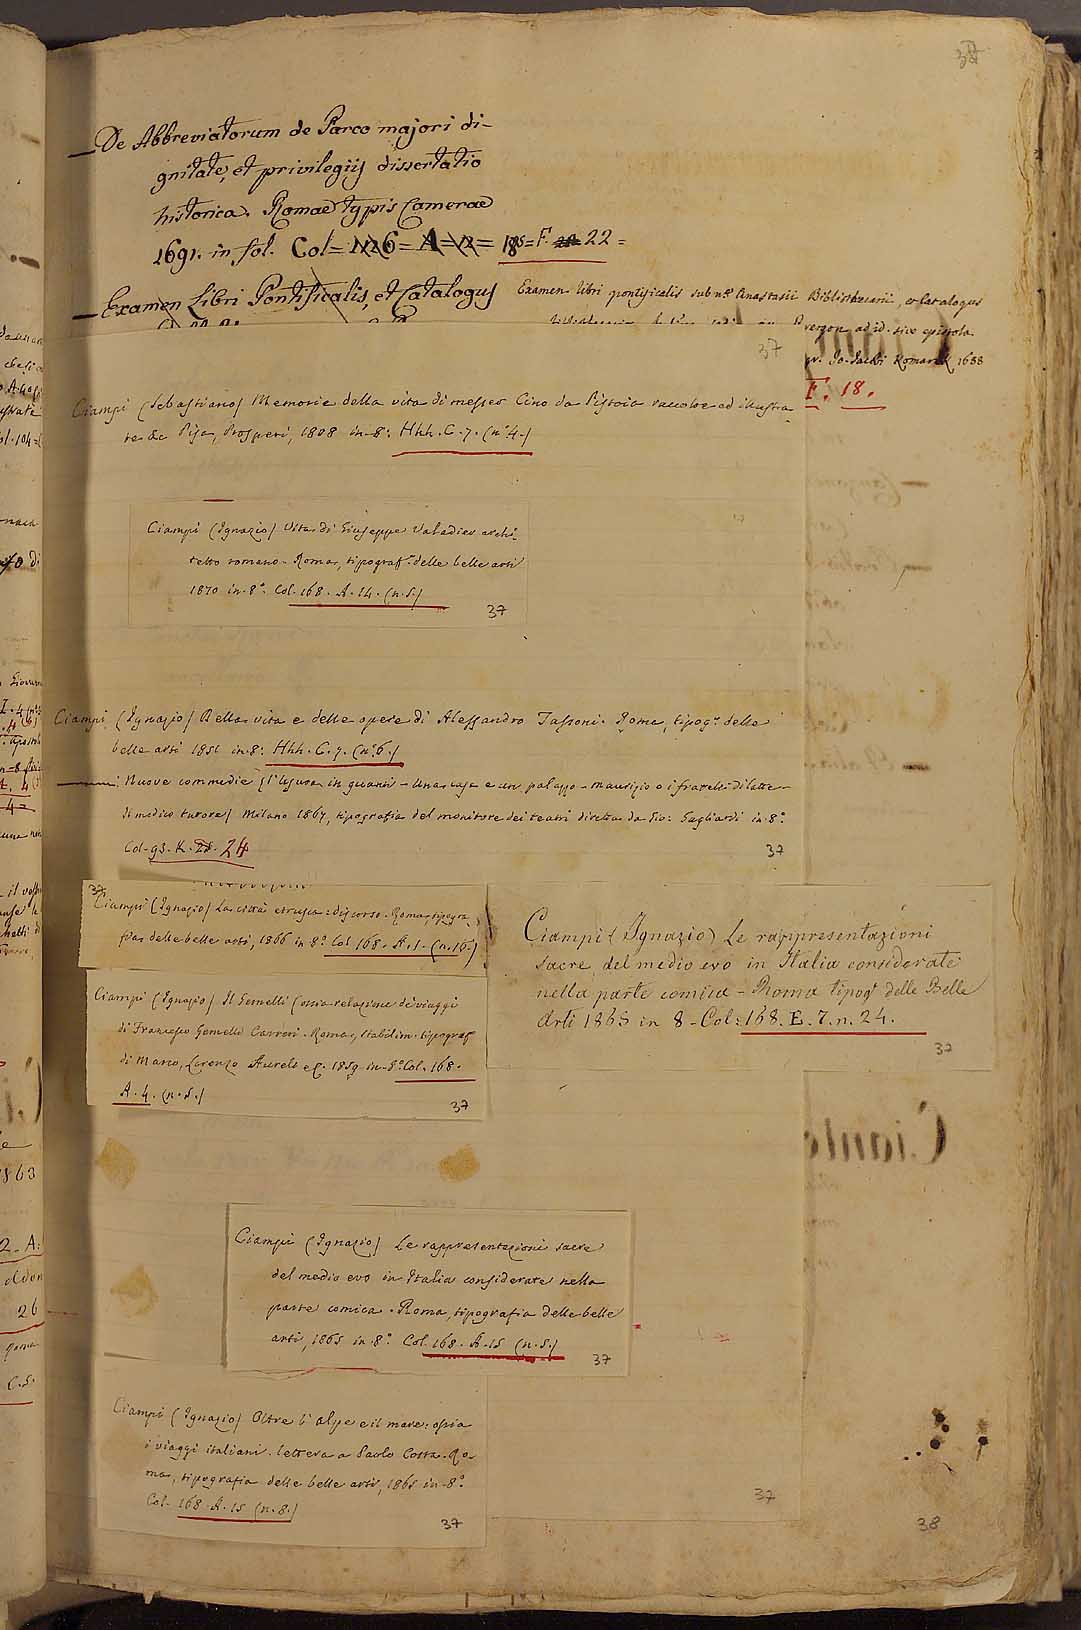 38
De Abbreviatorum de Parco majori di-
gnitate, et privilegijs dissertatio
historica. Romae typis Camerae
1691. in fol. Col= 126= A=12= 185= F. 22=
Examen Libri Pontificalis, et Catalogus
Examen libri pontificalis sub nᵉ Anastasii Bibliothecarii, et Catalogus
ad id. sive epistola
Jo. Jacobi Komarek 1688
F. 18.
37
Ciampi (Sebastiano) Memorie della vita di messer Cino da Pistoia raccolte ed illustra
te &c Pisa, Prosperi, 1808 in-8°. Hhh. C. 7. (n° 4.)
Ciampi (Ignazio) Vita di Giuseppe Valadier archi-
tetto romano - Roma, tipograf.ᵃ delle belle arti
1870 in-8°. Col. 168. A. 14. (n. 5.)
37
Ciampi (Ignazio) Della vita e delle opere di Alessandro Tassoni. Roma, tipogᵃ delle
belle arti 1856 in-8°. Hhh. C. 7. (n° 6.)
Nuove commedie (l'Usura in guanti - Una casa e un palazzo - Maurizio o i fratelli di latte -
Il medico tutore) Milano 1867, tipografia del monitore dei teatri diretta da Gio: Gagliardi in 8°
Col. 93. K. 24
37
37
Ciampi (Ignazio) La città etrusca: discorso. Roma, tipogra
fia delle belle arti, 1866 in 8° Col 168. A. 1. (n. 16.)
Ciampi (Ignazio) Le rappresentazioni
sacre del medio evo in Italia considerate
nella parte comica - Roma tipogᵃ delle Belle
Arti 1865 in 8 - Col: 168. E. 7. n. 24.
37
Ciampi (Ignazio) Il Gemelli (ossia relazione de' viaggi
di Francesco Gemelli Carreri. Roma, Stabilim. tipograf
di Marco, Lorenzo Aureli e C. 1859 in-8° Col. 168.
A. 4. (n. 5.)
37
Ciampi (Ignazio) Le rappresentazioni sacre
del medio evo in Italia considerate nella
parte comica. Roma, tipografia delle belle
arti, 1865 in 8°. Col. 168. A. 15 (n. 5.)
37
Ciampi (Ignazio) Oltre l'alpe e il mare: ossia
i viaggi italiani. lettera a Paolo Costa. Ro-
ma, tipografia delle belle arti, 1865 in-8°.
Col. 168. A. 15 (n. 8.)
37
37
38